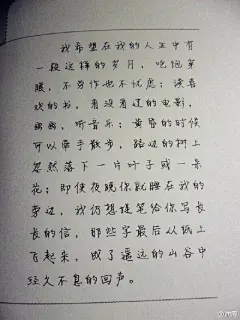 我希望在我的人生中有
一段这样的岁月,吃饱穿
暖,不劳作也不忧愁;读喜
欢的书,看没看过的电影,
画画,听音乐;黄昏的时候
可以牵手散步,路边的树上
忽然落下一片叶子或一朵
花;即使夜晚你就睡在我的
旁边,我仍想提笔给你写长
长的信,那些字最后从纸上
飞起来,成了遥远的山谷中
经久不息的回声。